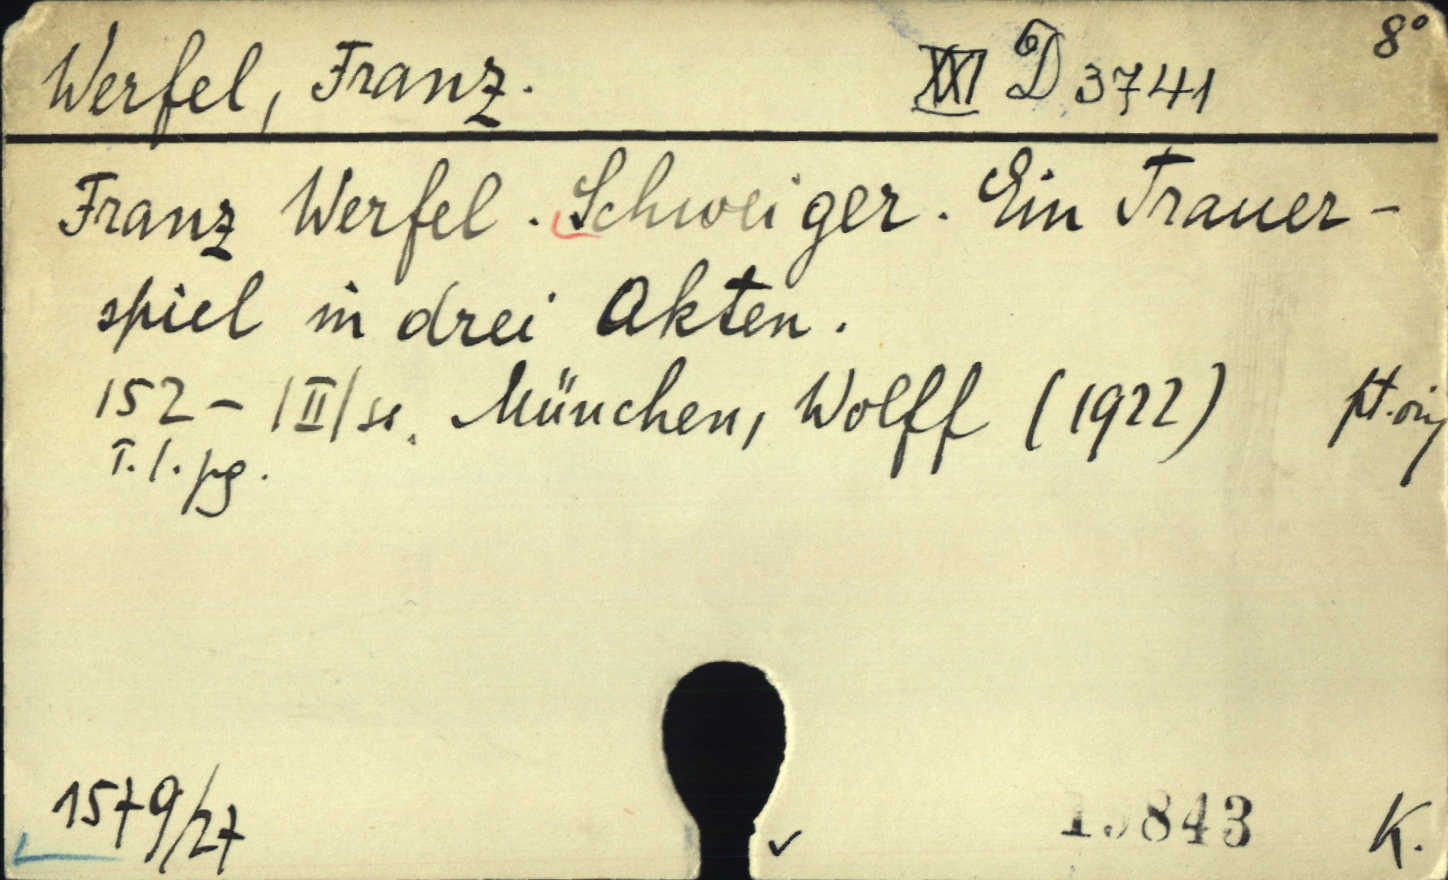 8°
Werfel, Franz. XXI D 3741
Franz Werfel. Schweiger. Ein Trauer-
spiel in drei Akten.
152 - |II| se. München, Wolff (1922)
T. l. pg.
1579/27
843 K.